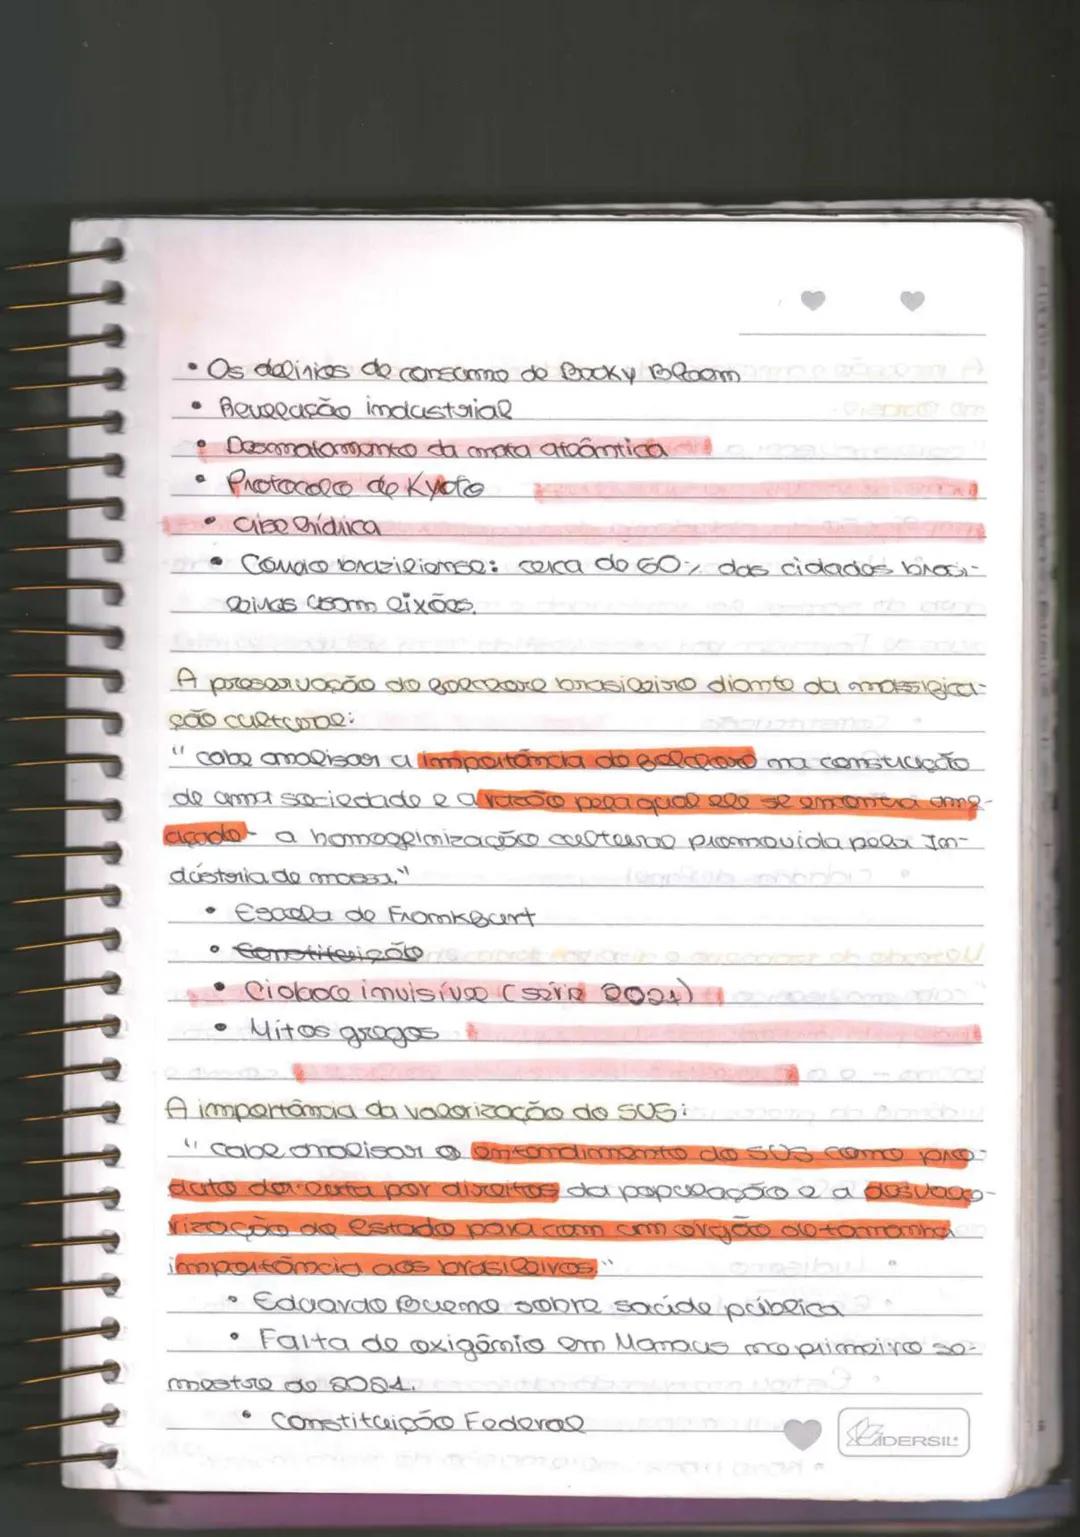 • Os delírios de consumo de Becky Bloom
• Revolução industrial
• Desmatamento da mata atlântica
• Protocolo de Kyoto
• Crise hídrica
• Correio braziliense: cerca de 60% das cidades brasi-
leiras usam lixões.
A preservação do folclore brasileiro diante da massifica-
ção cultural:
" cabe analisar a importância do folclore na construção
de uma sociedade e a razão pela qual ele se encontra ame-
açado - a homogeinização cultural promovida pela In-
dústria de massa."
• Escola de Frankfurt
• Constituição
• Cidade invisível (série 2021)
• Mitos gregos
A importância da valorização do SUS:
" cabe analisar o entendimento do SUS como pro-
duto da luta por direitos da população e a desvalo-
rização do Estado para com um orgão de tamanha
importância aos brasileiros."
• Eduardo Bueno sobre saúde pública
• Falta de oxigênio em Manaus no primeiro se-
mestre de 2021.
• Constituição Federal
IDERSIL